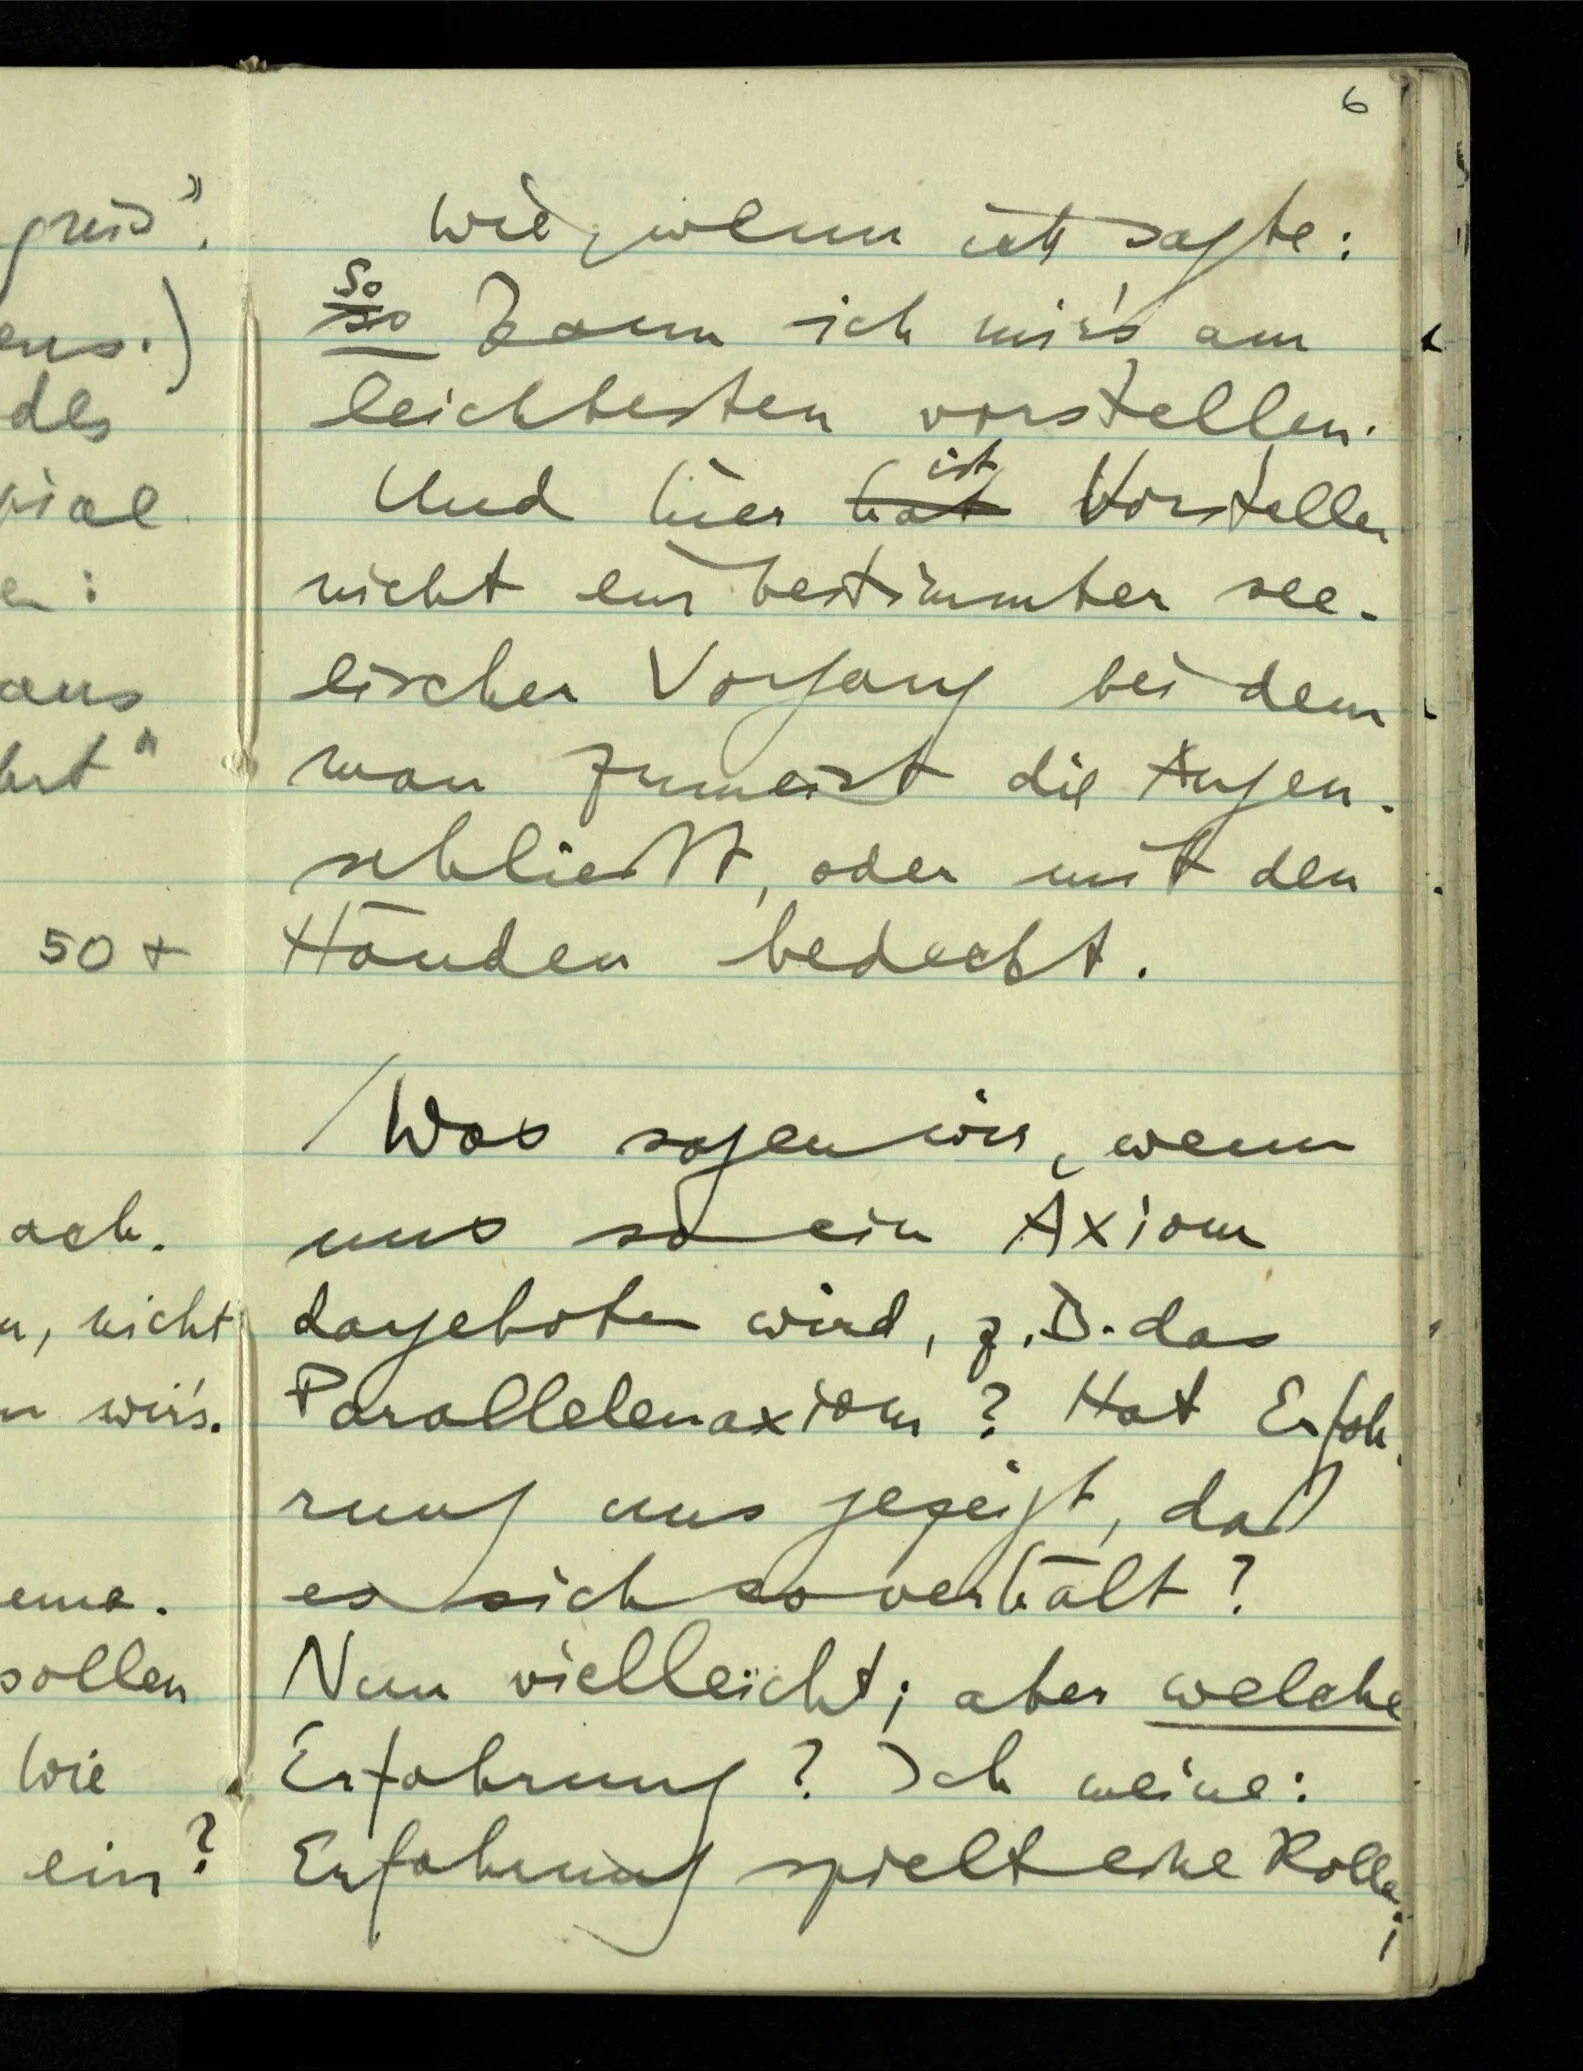 6
Wie, wenn ich sagte:
So
so kann ich mir's am
leichtesten vorstellen.
Und hier hat ist Vorstellen
nicht ein bestimmter see-
lischer Vorgang bei dem
man zumeist die Augen
schließt, oder mit den
Händen bedeckt.
/ Was sagen wir, wenn
uns so ein Axiom
dargeboten wird, z.B. das
Parallelenaxiom? Hat Erfah-
rung uns gezeigt, daß
es sich so verhält?
Nun vielleicht; aber welche
Erfahrung? Ich meine:
Erfahrung spielt eine Rolle;
ens.)
des
aus
50 +
ach.
n, nicht
n wir's.
sollen
Wie
ein?